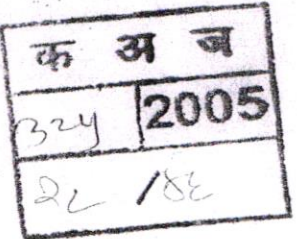 क अ ज
३२५ 2005
२८ /४६